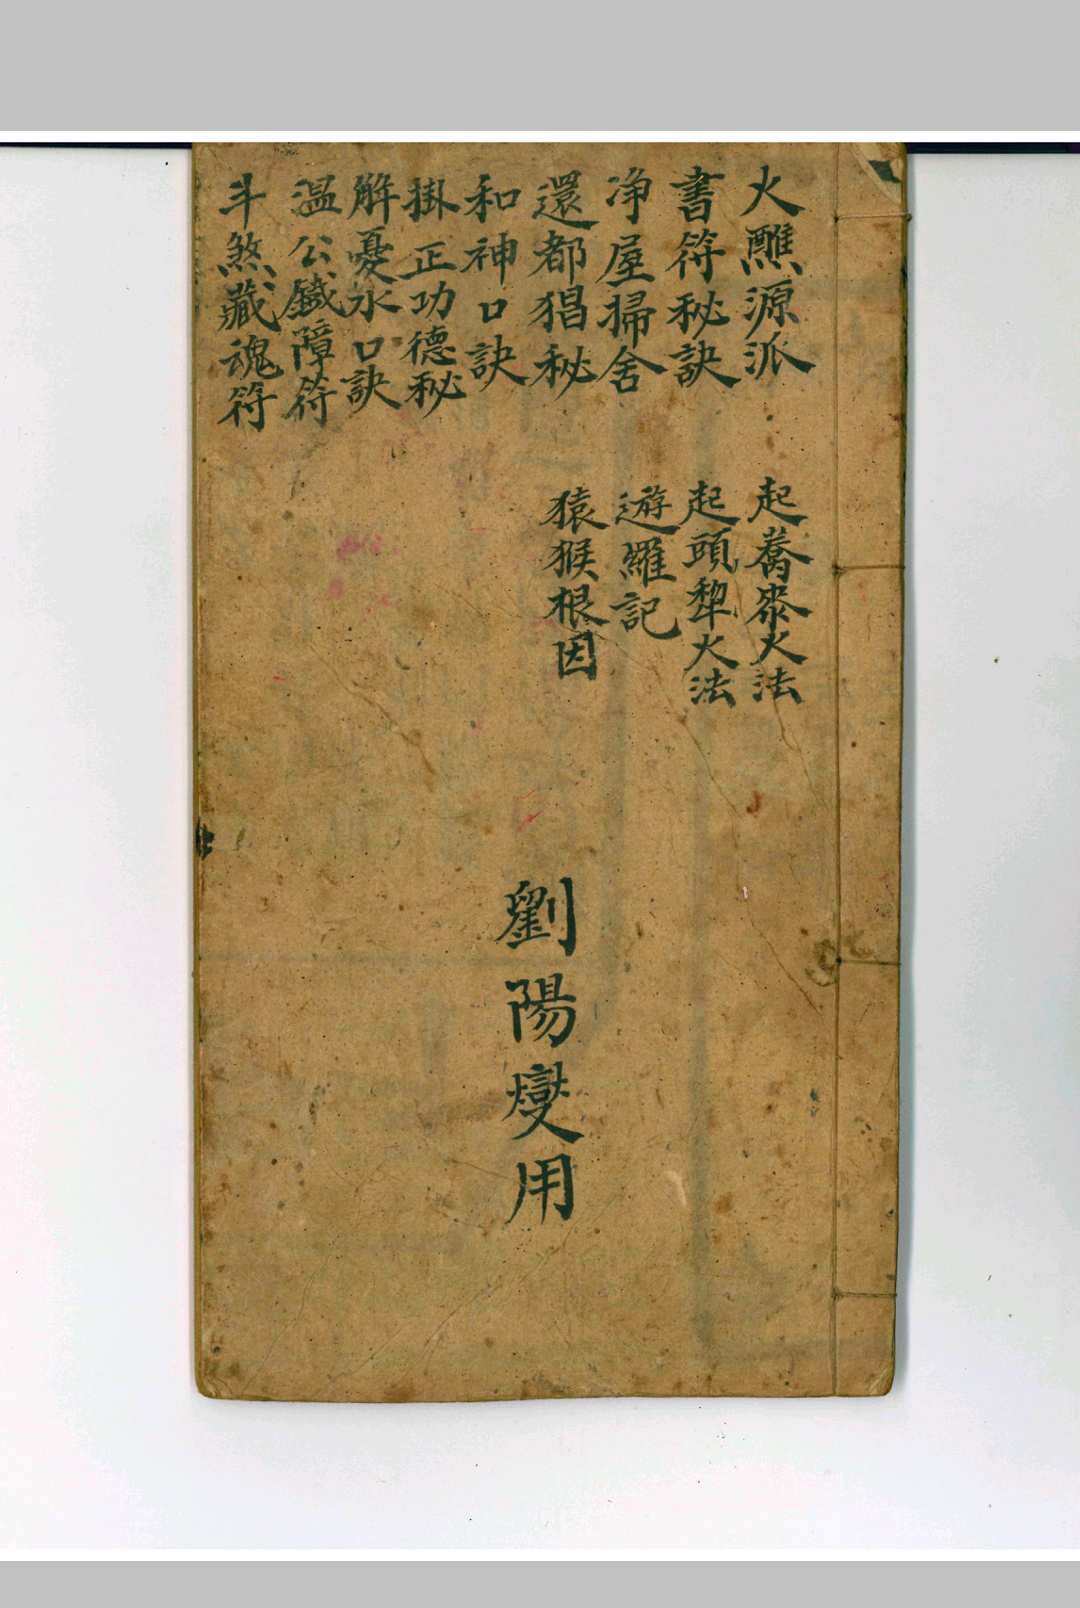 火醮源派
書符秘訣
净屋掃舍
還都猖秘
和神口訣
掛正功德秘
解憂氷口訣
溫公鐵障符
斗煞藏魂符
起蕎麥火法
起頭犂火法
遊羅記
猿猴根因
劉陽燮用